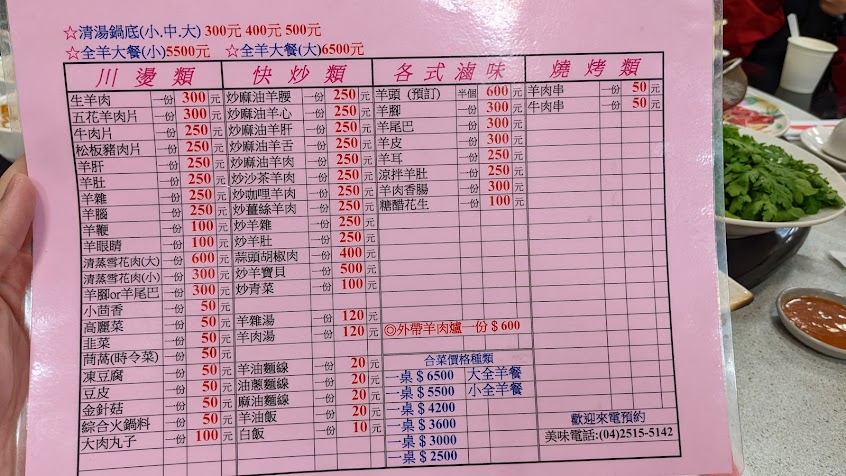 ☆清湯鍋底(小.中.大) 300元 400元 500元
☆全羊大餐(小)5500元 ☆全羊大餐(大)6500元
川燙類
生羊肉 一份 300 元
五花羊肉片 一份 300 元
牛肉片 一份 250 元
松板豬肉片 一份 250 元
羊肝 一份 250 元
羊肚 一份 250 元
羊雜 一份 250 元
羊腦 一份 250 元
羊鞭 一份 100 元
羊眼睛 一份 100 元
清蒸雪花肉(大) 一份 600 元
清蒸雪花肉(小) 一份 300 元
羊腳or羊尾巴 一份 300 元
小茴香 一份 50 元
高麗菜 一份 50 元
韭菜 一份 50 元
茼萵(時令菜) 一份 50 元
凍豆腐 一份 50 元
豆皮 一份 50 元
金針菇 一份 50 元
綜合火鍋料 一份 50 元
大肉丸子 一份 100 元
快炒類
炒麻油羊腰 一份 250 元
炒麻油羊心 一份 250 元
炒麻油羊肝 一份 250 元
炒麻油羊舌 一份 250 元
炒麻油羊肉 一份 250 元
炒沙茶羊肉 一份 250 元
炒咖哩羊肉 一份 250 元
炒薑絲羊肉 一份 250 元
炒羊雜 一份 250 元
炒羊肚 一份 250 元
蒜頭胡椒肉 一份 400 元
炒羊寶貝 一份 500 元
炒青菜 一份 100 元
羊雜湯 一份 120 元
羊肉湯 一份 120 元
羊油麵線 一份 20 元
油蔥麵線 一份 20 元
麻油麵線 一份 20 元
羊油飯 一份 20 元
白飯 一份 10 元
各式滷味
羊頭(預訂) 半個 600 元
羊腳 一份 300 元
羊尾巴 一份 300 元
羊皮 一份 300 元
羊耳 一份 250 元
涼拌羊肚 一份 250 元
羊肉香腸 一份 300 元
糖醋花生 一份 100 元
◎外帶羊肉爐一份$600
合菜價格種類
一桌$6500 大全羊餐
一桌$5500 小全羊餐
一桌$4200
一桌$3600
一桌$3000
一桌$2500
燒烤類
羊肉串 一份 50 元
牛肉串 一份 50 元
歡迎來電預約
美味電話:(04)2515-5142